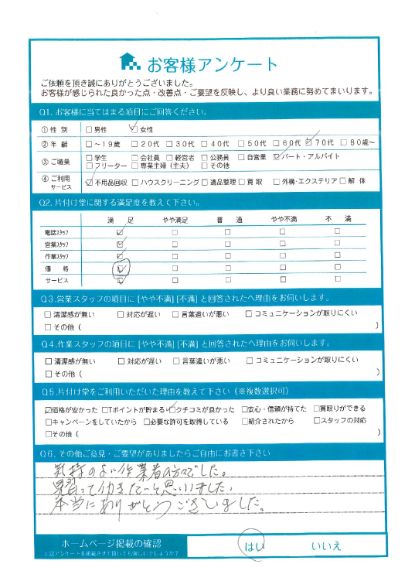 お客様アンケート
ご依頼を頂き誠にありがとうございました。
お客様が感じられた良かった点・改善点・ご要望を反映し、より良い業務に努めてまいります。
Q1. お客様に当てはまる項目にご回答ください。
① 性 別 □男性 ☑女性
② 年 齢 □～19歳 □20代 □30代 □40代 □50代 □60代 ☑70代 □80歳～
③ ご職業 □学生 □会社員 □経営者 □公務員 □自営業 ☑パート・アルバイト
□フリーター □専業主婦（主夫） □その他
④ ご利用サービス ☑不用品回収 □ハウスクリーニング □遺品整理 □買取 □外構・エクステリア □解体
Q2. 片付け堂に関する満足度を教えて下さい。
満 足 やや満足 普 通 やや不満 不 満
電話スタッフ ☑ □ □ □ □
営業スタッフ ☑ □ □ □ □
作業スタッフ ☑ □ □ □ □
価 格 ☑ □ □ □ □
サービス ☑ □ □ □ □
Q3. 営業スタッフの項目に [やや不満] [不満] と回答されたへ理由をお伺いします。
□清潔感が無い □対応が遅い □言葉遣いが悪い □コミュニケーションが取りにくい
□その他（ ）
Q4. 作業スタッフの項目に [やや不満] [不満] と回答されたへ理由をお伺いします。
□清潔感が無い □対応が遅い □言葉遣いが悪い □コミュニケーションが取りにくい
□その他（ ）
Q5. 片付け堂をご利用いただいた理由を教えて下さい（※複数選択可）
☑価格が安かった □Tポイントが貯まる ☑クチコミが良かった □安心・信頼が持てた □買取りができる
□キャンペーンをしていたから □必要な許可を取得している □紹介されたから □スタッフの対応
□その他（ ）
Q6. その他ご意見・ご要望がありましたらご自由にお書き下さい
気持のよい作業者の方でした。
見習って行きたいと思いました。
本当にありがとうございました。
ホームページ掲載の確認
はい いいえ